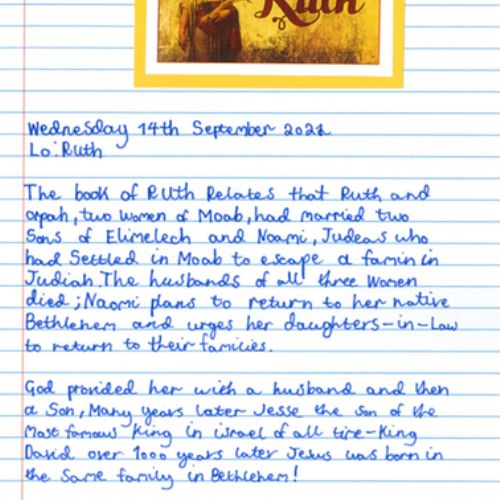 Ruth
Wednesday 14th September 2022
Lo: Ruth
The book of RUTH Relates that Ruth and
orpah, two women of Moab, had married two
Sons of Elimelech and Noami, Judeas who
had Settled in Moab to escape a famin in
Judiah. The husbands of all three Women
died; Naomi plans to return to her native
Bethlehem and urges her daughters-in-Law
to return to their families.
God provided her with a husband and then
a Son, Many years later Jesse the son of the
Most famous King in israel of all time-King
David over 1000 years later Jesus was born in
the Same family in Bethlehem!